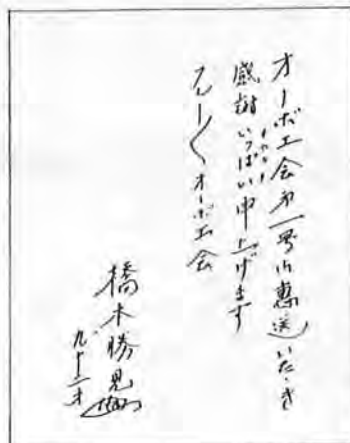 オーボエ会第一号御恵送いたゞき
感謝いっぱい申上げます
フレーフレーオーボエ会
橋本勝見
九十二才